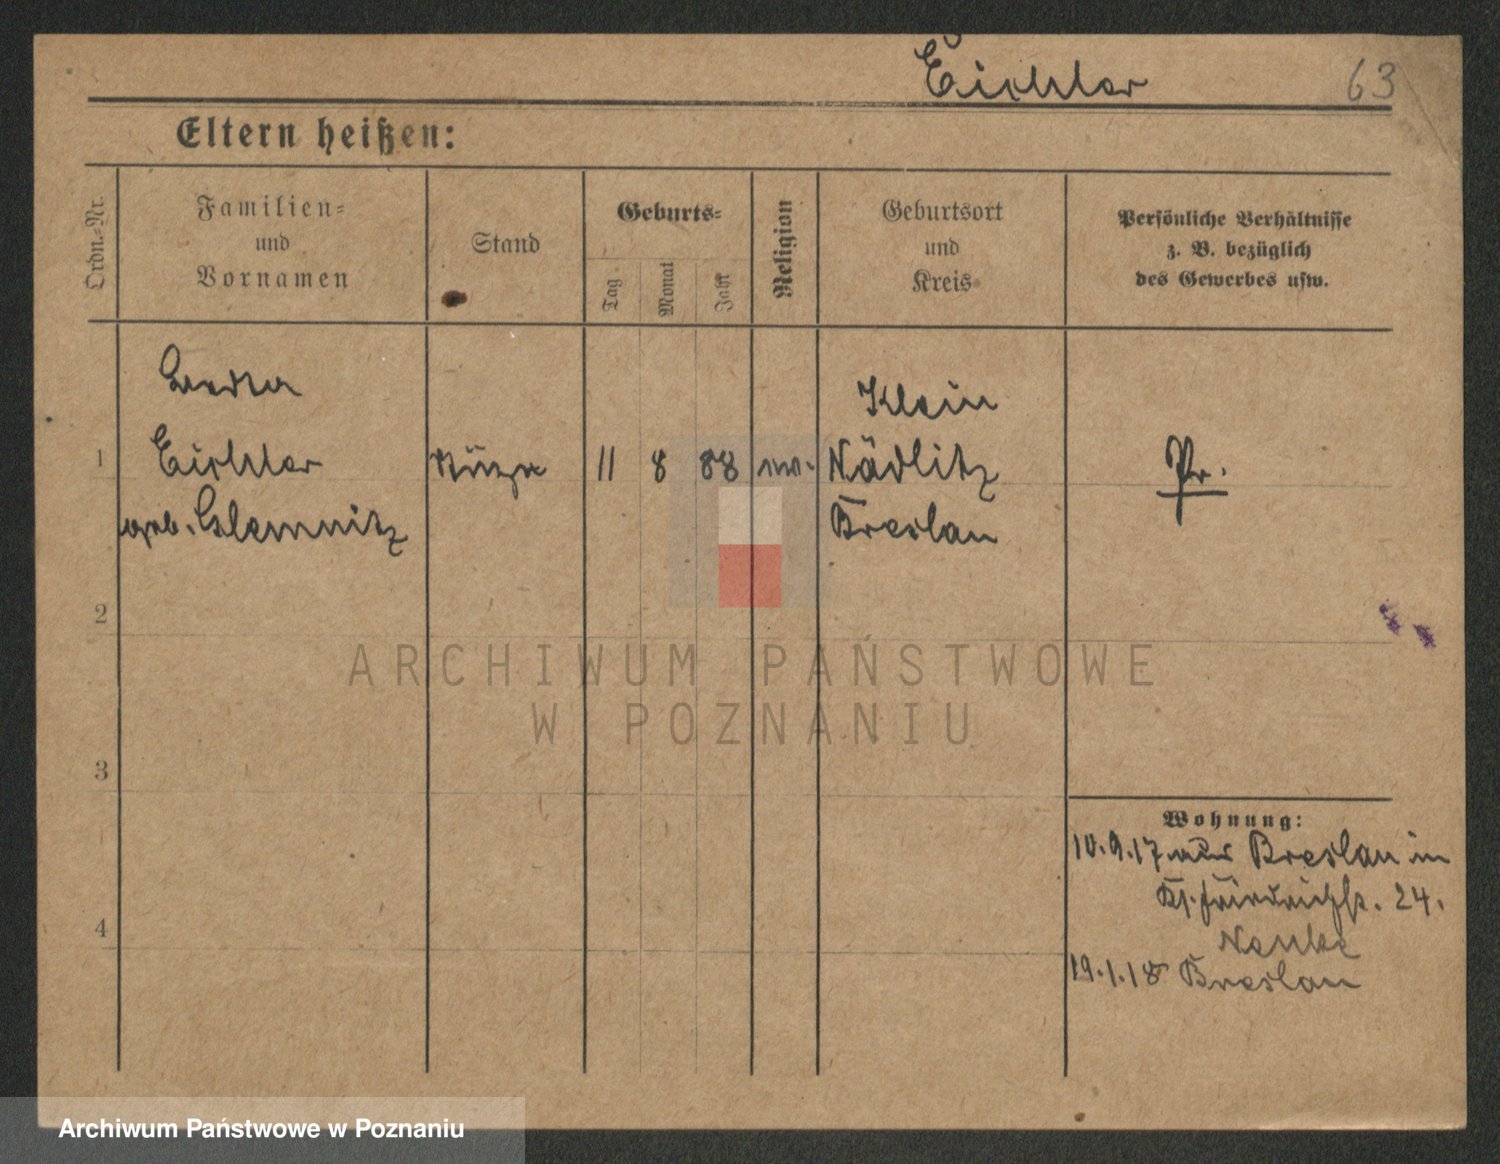 Eichler 63
Eltern heißen:
Ordn.-Nr.
Familien-
und
Vornamen
Stand
Geburts-
Tag
Monat
Jahr
Religion
Geburtsort
und
Kreis
Persönliche Verhältnisse
z. B. bezüglich
des Gewerbes usw.
Klein
1 Eichler Stütze 11 8 88 Nädlitz Pr.
geb. Glemnitz Breslau
2
ARCHIWUM PAŃSTWOWE
W POZNANIU
3
Wohnung:
10.9.17 aus Breslau in
24.
4
19.1.18 Breslau
Archiwum Państwowe w Poznaniu